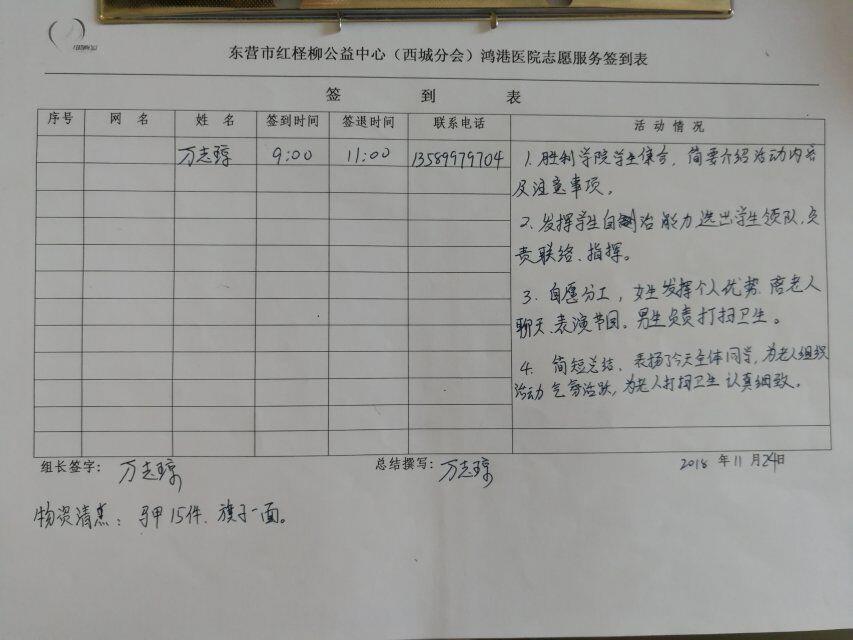 东营市红柽柳公益中心（西城分会）鸿港医院志愿服务签到表
签 到 表
序号 网 名 姓 名 签到时间 签退时间 联系电话 活 动 情 况
万志琼 9:00 11:00 13589979704
1. 胜利学院学生集合，简要介绍活动内容
及注意事项。
2、发挥学生自制治能力选出学生领队，负
责联络、指挥。
3. 自愿分工，女生发挥个人优势 陪老人
聊天、表演节目。男生负责打扫卫生。
4. 简短总结，表扬了今天全体同学，为老人组织
活动气氛活跃，为老人打扫卫生认真细致。
组长签字： 万志琼 总结撰写： 万志琼 2018 年 11 月 24日
物资清点：马甲15件、旗子一面。